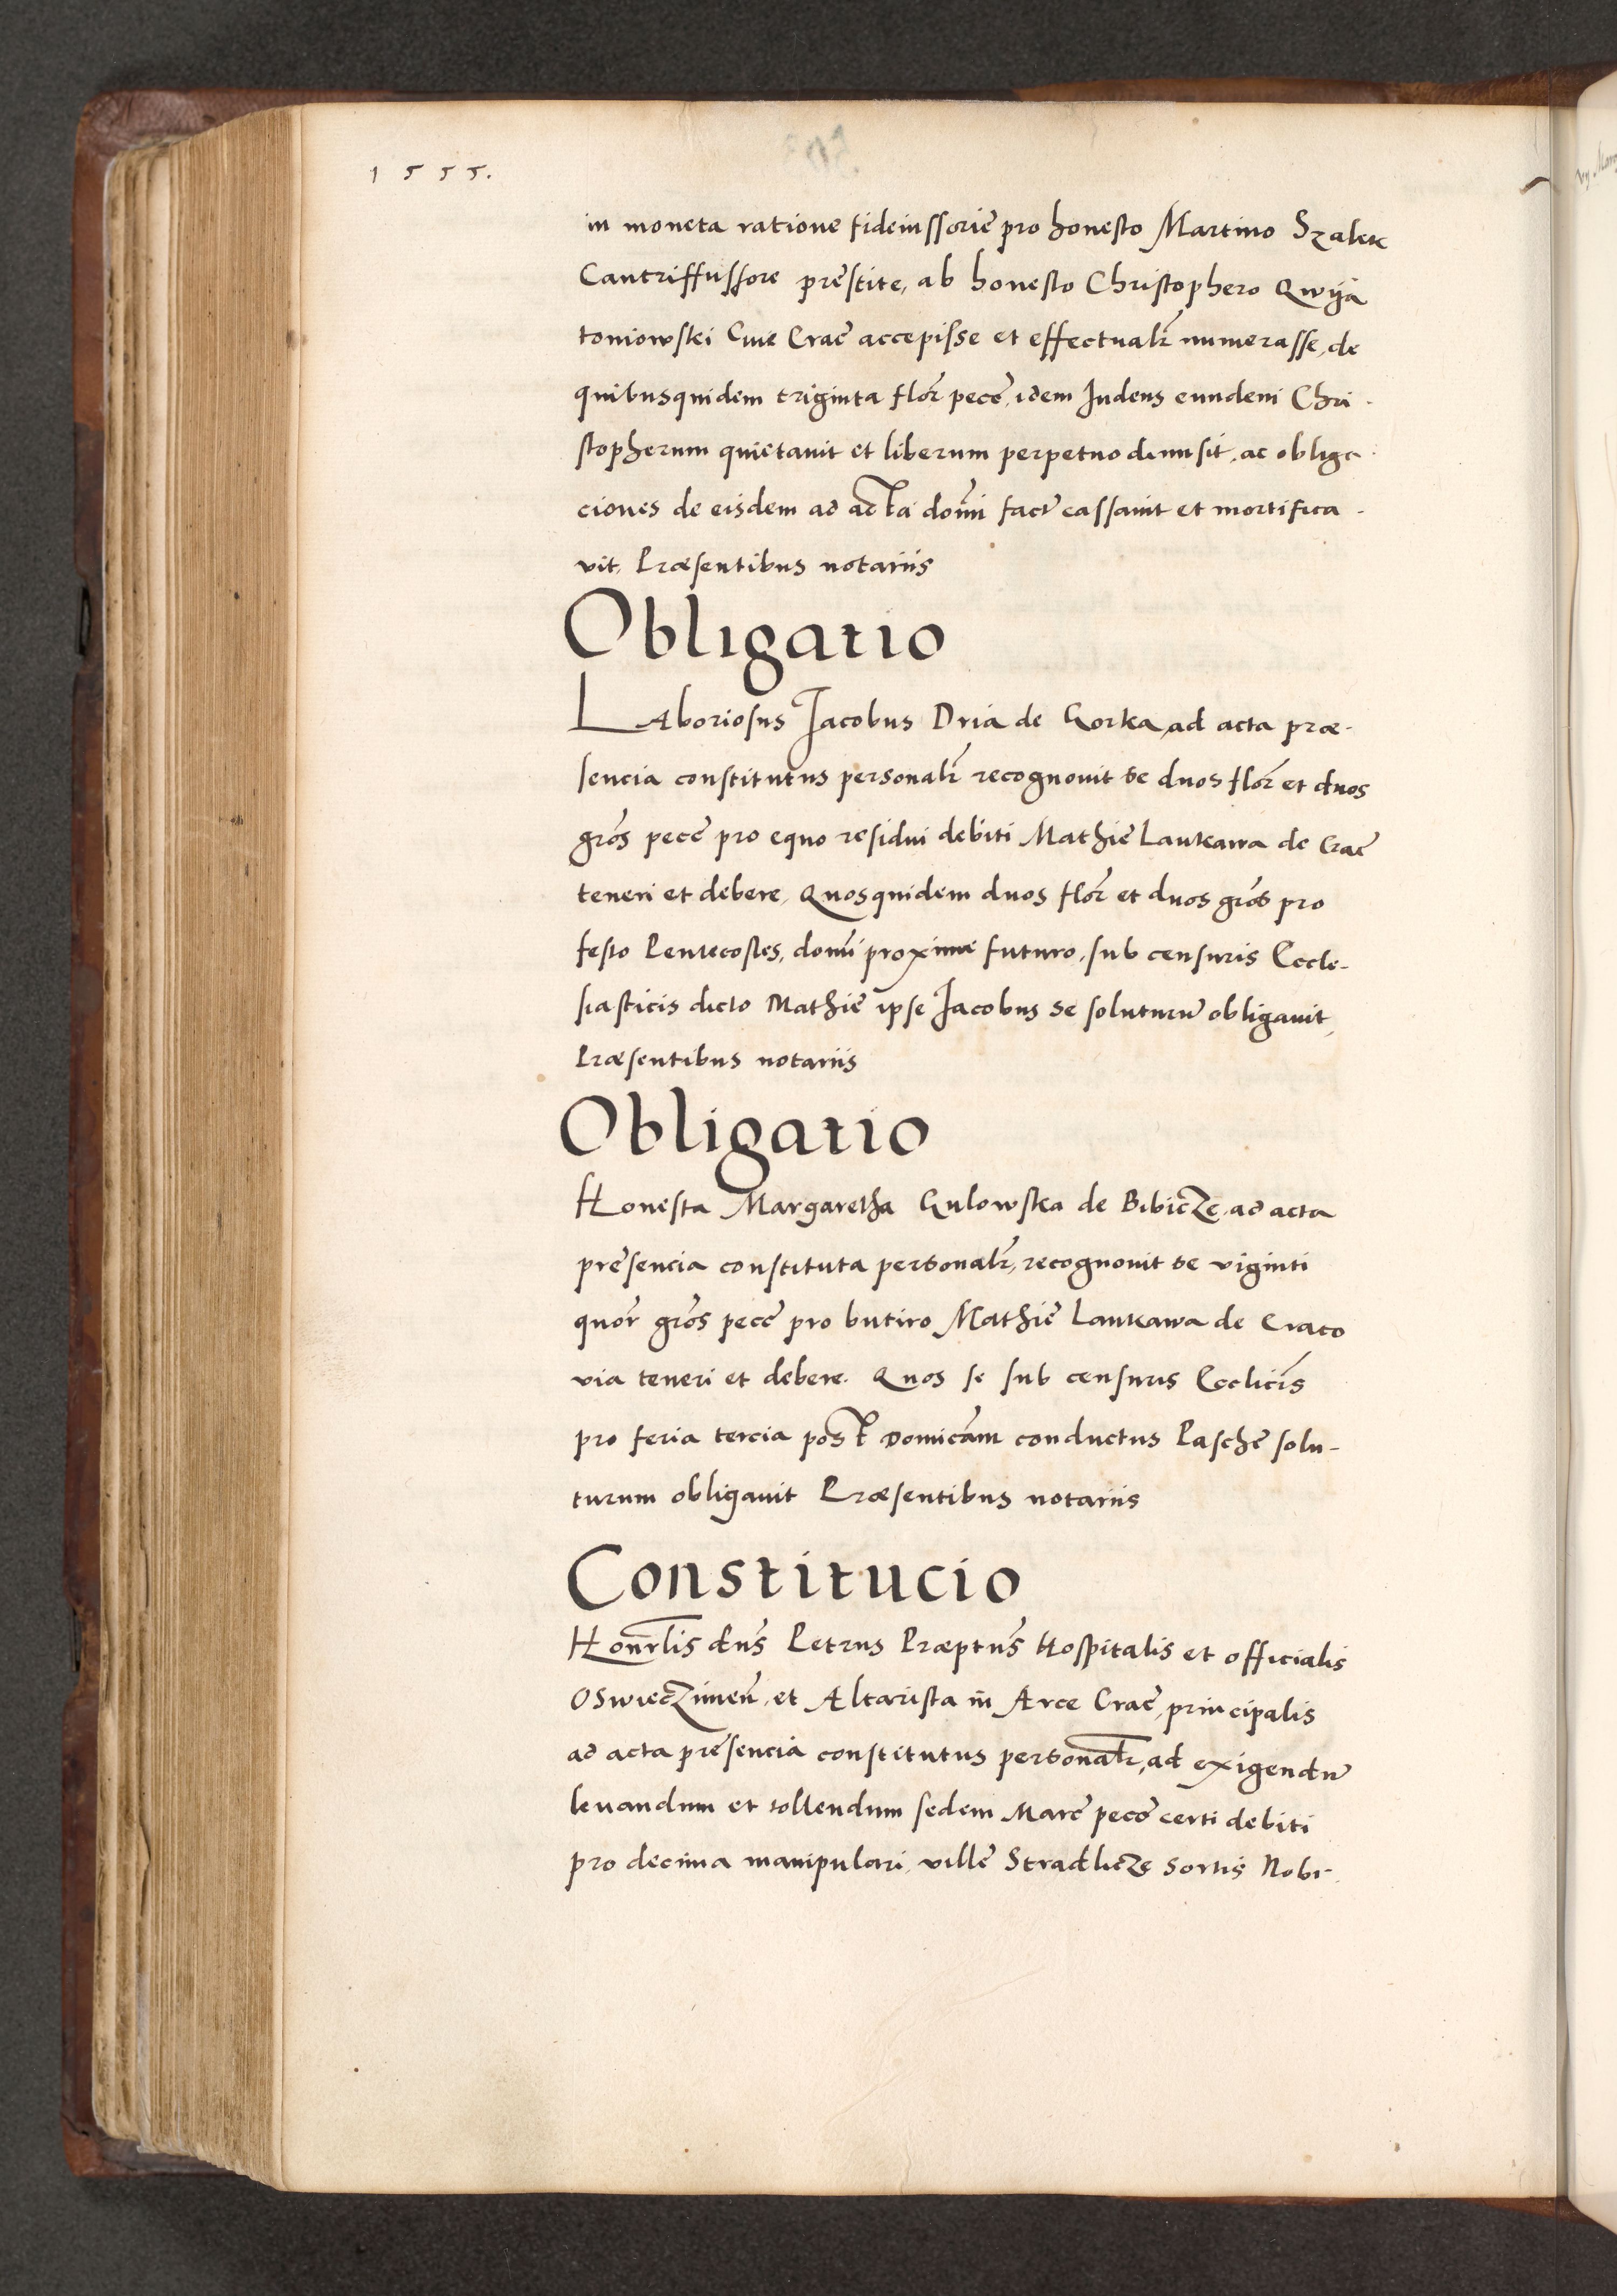 1555.
in moneta ratione fideiussorie pro honesto Martino Szalek
Cantriffussore prestite, ab honesto Christophero Qwya
toniowski Cive Crac̄ accepisse et effectualr̄ numerasse, de
quibusquidem triginta flor̄ pecc̄, idem Iudeus eundem Chri-
stopherum quietavit et liberum perpetuo dimisit, ac obliga-
ciones de eisdem ad acta domī fact̄ cassavit et mortifica-
vit, Præsentibus notariis
Obligatio
LAboriosus Jacobus Dria de Gorka, ad acta præ-
sencia constitutus personalr̄ recognovit se duos flor̄ et duos
gros̄ pecc̄ pro equo residui debiti Mathie Lankawa de Crac̄
teneri et debere, Quosquidem duos flor̄ et duos gros̄ pro
festo Pentecostes, domī proxime futuro, sub censuris Eccle-
siasticis dicto Mathie ipse Jacobus se soluturū obligavit,
Præsentibus notariis
Obligatio
Honesta Margaretha Gulowska de Bibicze, ad acta
presencia constituta personalr̄, recognovit se viginti
quor̄ gros̄ pecc̄ pro butiro Mathie Lankawa de Craco
via teneri et debere. Quos se sub censuris Ecclicīs
pro feria tercia post Domicām conductus Pasche solu-
turum obligavit Præsentibus notariis
Constitucio
Honrlis dn̄s Petrus Præptus̄ Hospitalis et officialis
Oswieczimen̄, et Altarista in Arce Crac̄, principalis
ad acta presencia constitutus personalr̄, ad exigendū
levandum et tollendum sedem Marc̄ pecc̄ certi debiti
pro decima manipulari, ville Stradlicze sortis Nobi-